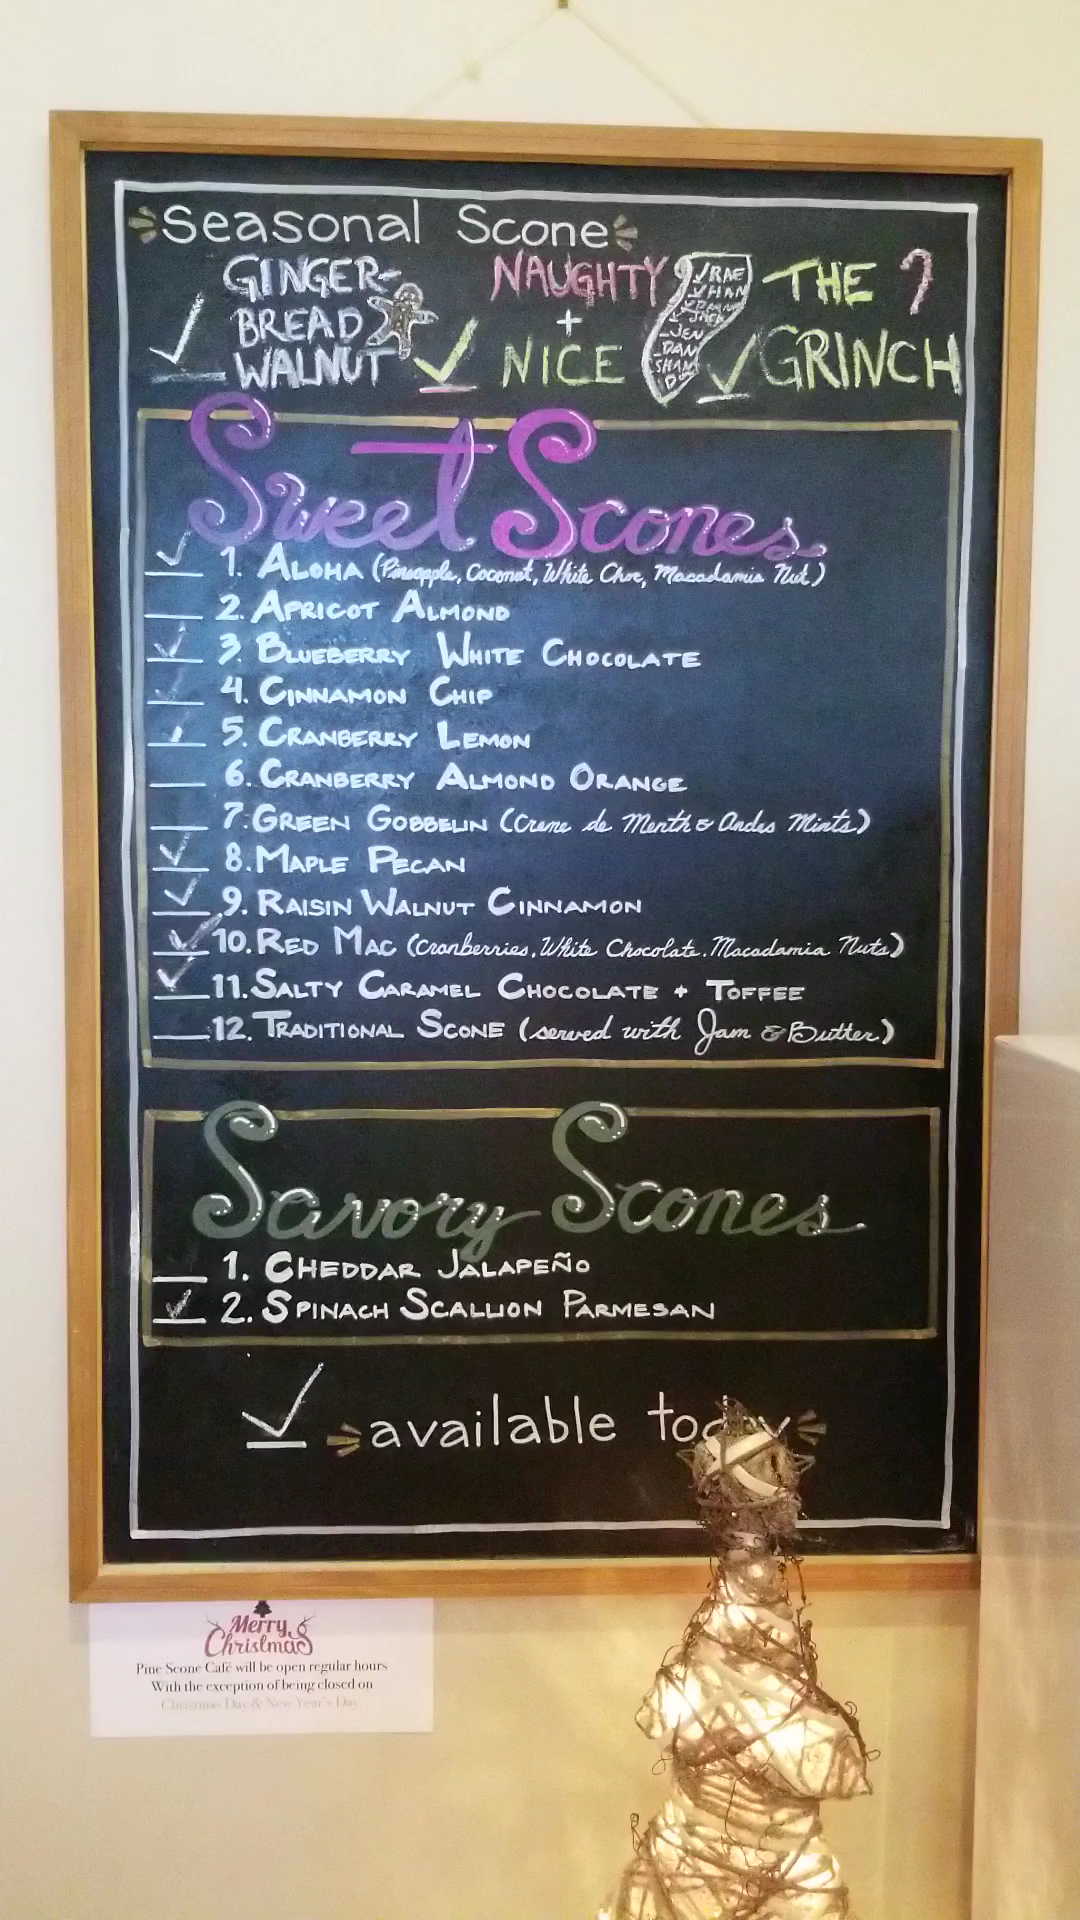 Seasonal Scone
GINGER-
BREAD
WALNUT
NAUGHTY
+
NICE
RAE
JEN
DAN
SHAN
THE
GRINCH
Sweet Scones
1. ALOHA (Pineapple, Coconut, White Choc, Macadamia Nut)
2. APRICOT ALMOND
3. BLUEBERRY WHITE CHOCOLATE
4. CINNAMON CHIP
5. CRANBERRY LEMON
6. CRANBERRY ALMOND ORANGE
7. GREEN GOBBELIN (Creme de Menth & Andes Mints)
8. MAPLE PECAN
9. RAISIN WALNUT CINNAMON
10. RED MAC (Cranberries, White Chocolate, Macadamia Nuts)
11. SALTY CARAMEL CHOCOLATE + TOFFEE
12. TRADITIONAL SCONE (served with Jam & Butter)
Savory Scones
1. CHEDDAR JALAPEÑO
2. SPINACH SCALLION PARMESAN
available today
Merry
Christmas
Pine Scone Café will be open regular hours
With the exception of being closed on
Christmas Day & New Year's Day.